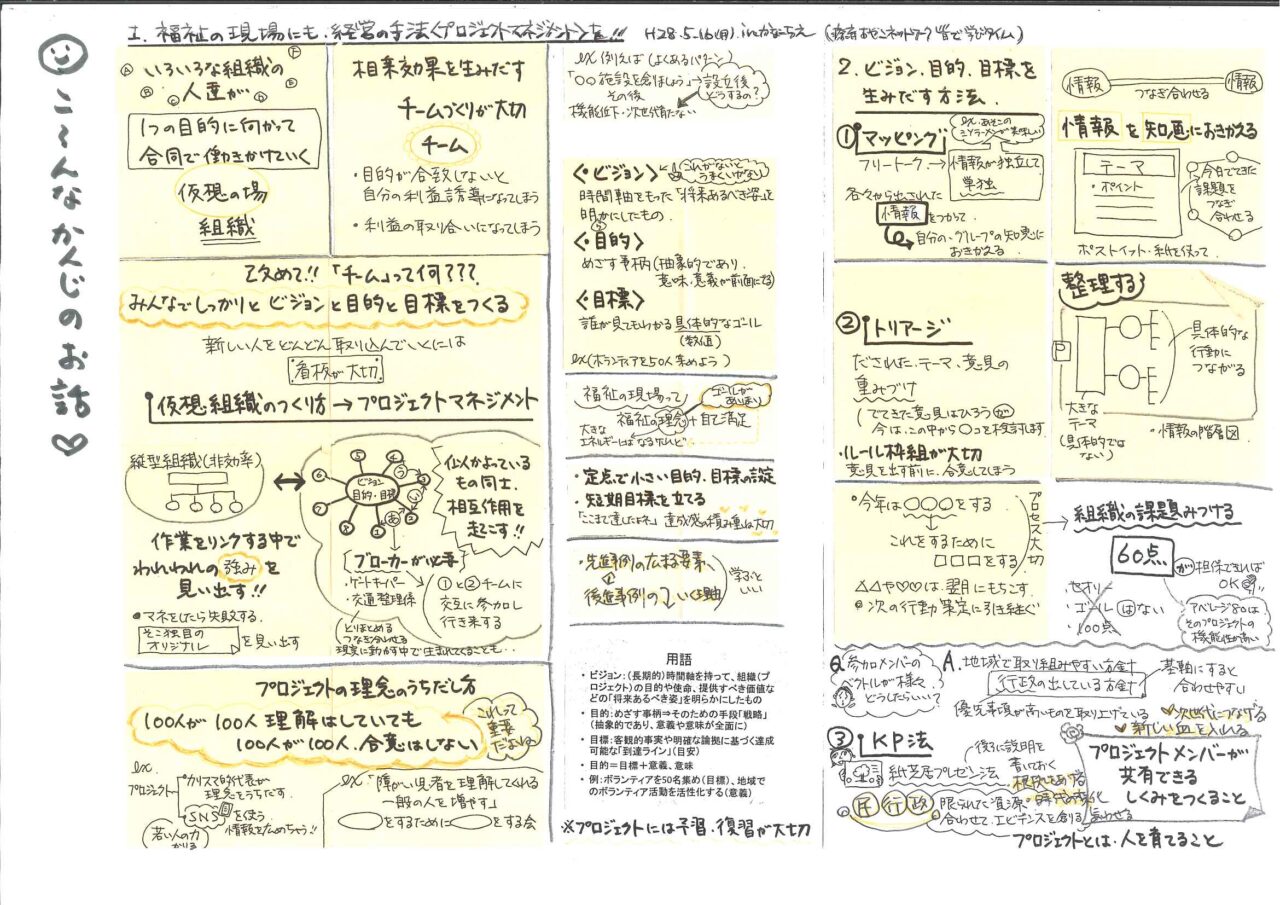 こ～んなかんじのお話♡
1. 福祉の現場にも、経営の手法くプロジェクトマネジメント〉を!!!
H28.5.16(月).in かなーちえ
いろいろな組織の
人達が
1つの目的に向かって
合同で働きかけていく
仮想の場
組織
相乗効果を生みだす
チームづくりが大切
チーム
・目的が合致しないと
自分の利益誘導になってしまう
・利益の取り合いになってしまう
改めて!!「チーム」って何???
みんなでしっかりと ビジョンと目的と目標をつくる
新しい人をどんどん取り込んでいくには
看板が大切
仮想組織のつくり方→プロジェクトマネジメント
縦型組織(非効率)
ビジョン
目的・目標
似かよっている
もの同士、
相互作用を
起こす!!
作業をリンクする中で
われわれの強みを
見い出す!!
・マネをしたら失敗する。
そこ独自の
オリジナル
を見い出す
ブローカーが必要
・ゲートキーパー
・交通整理係
とりまとめる
つなぎ合わせる
現実に動かす中で生まれてくることも…
①と②チームに
交互に参加し
行き来する
プロジェクトの理念のうちだし方
100人が100人理解はしていても
100人が100人、合意はしない
これって
重要
だよね
ex.
プロジェクト
・カリスマ的代表が
理念をうちだす。
・SNSを使う
情報をためちゃう!!
若い人の力
かりる
ex「障がい児者を理解してくれる
一般の人を増やす」
をするために をする会
ex 例えば(よくあるパターン)
「○○施設を創りましょう」→設立後
どうするの?
その後
機能低下・次世代育たない
<・ビジョン>
これがないと
うまくいかない
時間軸をもった「将来あるべき姿」を
明かにしたもの。
<・目的>
めざす事柄(抽象的であり、
意味・意義が前面にでる)
<・目標>
誰が見てもわかる具体的なゴール
(数値)
ex(ボランティアを50人集めよう)
福祉の現場って
ゴールが
あいまい
福祉の理念+自己満足
大きな
エネルギーにはなるけれど
・定点で小さい目的、目標の設定
・短期目標を立てる
「ここまで達したよネ」達成感の積み重ね大切
・先進事例の広まる要素、
後進事例の いく理由
学ぶと
いい
用語
・ビジョン:(長期的)時間軸を持って、組織(プ
ロジェクト)の目的や使命、提供すべき価値な
どの「将来あるべき姿」を明らかにしたもの
・目的:めざす事柄⇒そのための手段「戦略」
(抽象的であり、意義や意味が全面に)
・目標:客観的事実や明確な論拠に基づく達成
可能な「到達ライン」(目安)
・目的=目標+意義、意味
・例:ボランティアを50名集め(目標)、地域で
のボランティア活動を活性化する(意義)
※プロジェクトには予習・復習が大切
2. ビジョン、目的、目標を
生みだす方法。
①マッピング
ex.あそこの
ミソラーメンが美味しい
フリートーク→情報が独立して
単独
各々から出された
情報をつかって
自分の・グループの知恵に
おきかえる
情報
つなぎ合わせる
情報
情報を知恵におきかえる
テーマ
・ポイント
今日でてきた
課題を
つなぎ
合わせる
ポストイット・紙を使って
②トリアージ
だされた、テーマ、意見の
重みづけ
(でてきた意見はひろうが
今は、この中から○コを検討します
・ルール枠組が大切
意見を出す前に、合意してしまう
整理する
P
具体的な
行動に
つながる
大きな
テーマ
(具体的では
ない)
・情報の階層図
・今年は○○○をする
これをするために
□□□をする
プロセス大切
△△や♡♡♡は、翌月にもちこす。
次の行動策定に引き継ぐ
組織の課題みつける
60点
が担保できれば
OK
セオリー
ゴール
100点
はない
アベレージ80は、
そのプロジェクトの
機能性が高い
Q.参加メンバーの
ベクトルが様々
どうしたらいい?
A.地域で取り組みやすい方針
行政の出している方針
基軸にすると
合わせやすい
優先事項が高いものを取り上げている
次世代につなげる
新しい血を入れる
③KP法
紙芝居プレゼン法
後ろに説明を
書いておく
根拠をあげる
民 行政
限られた資源
時代の変化
合わせて、エビデンスを創る
プロジェクトメンバーが
共有できる
しくみをつくること
プロジェクトとは、人を育てること